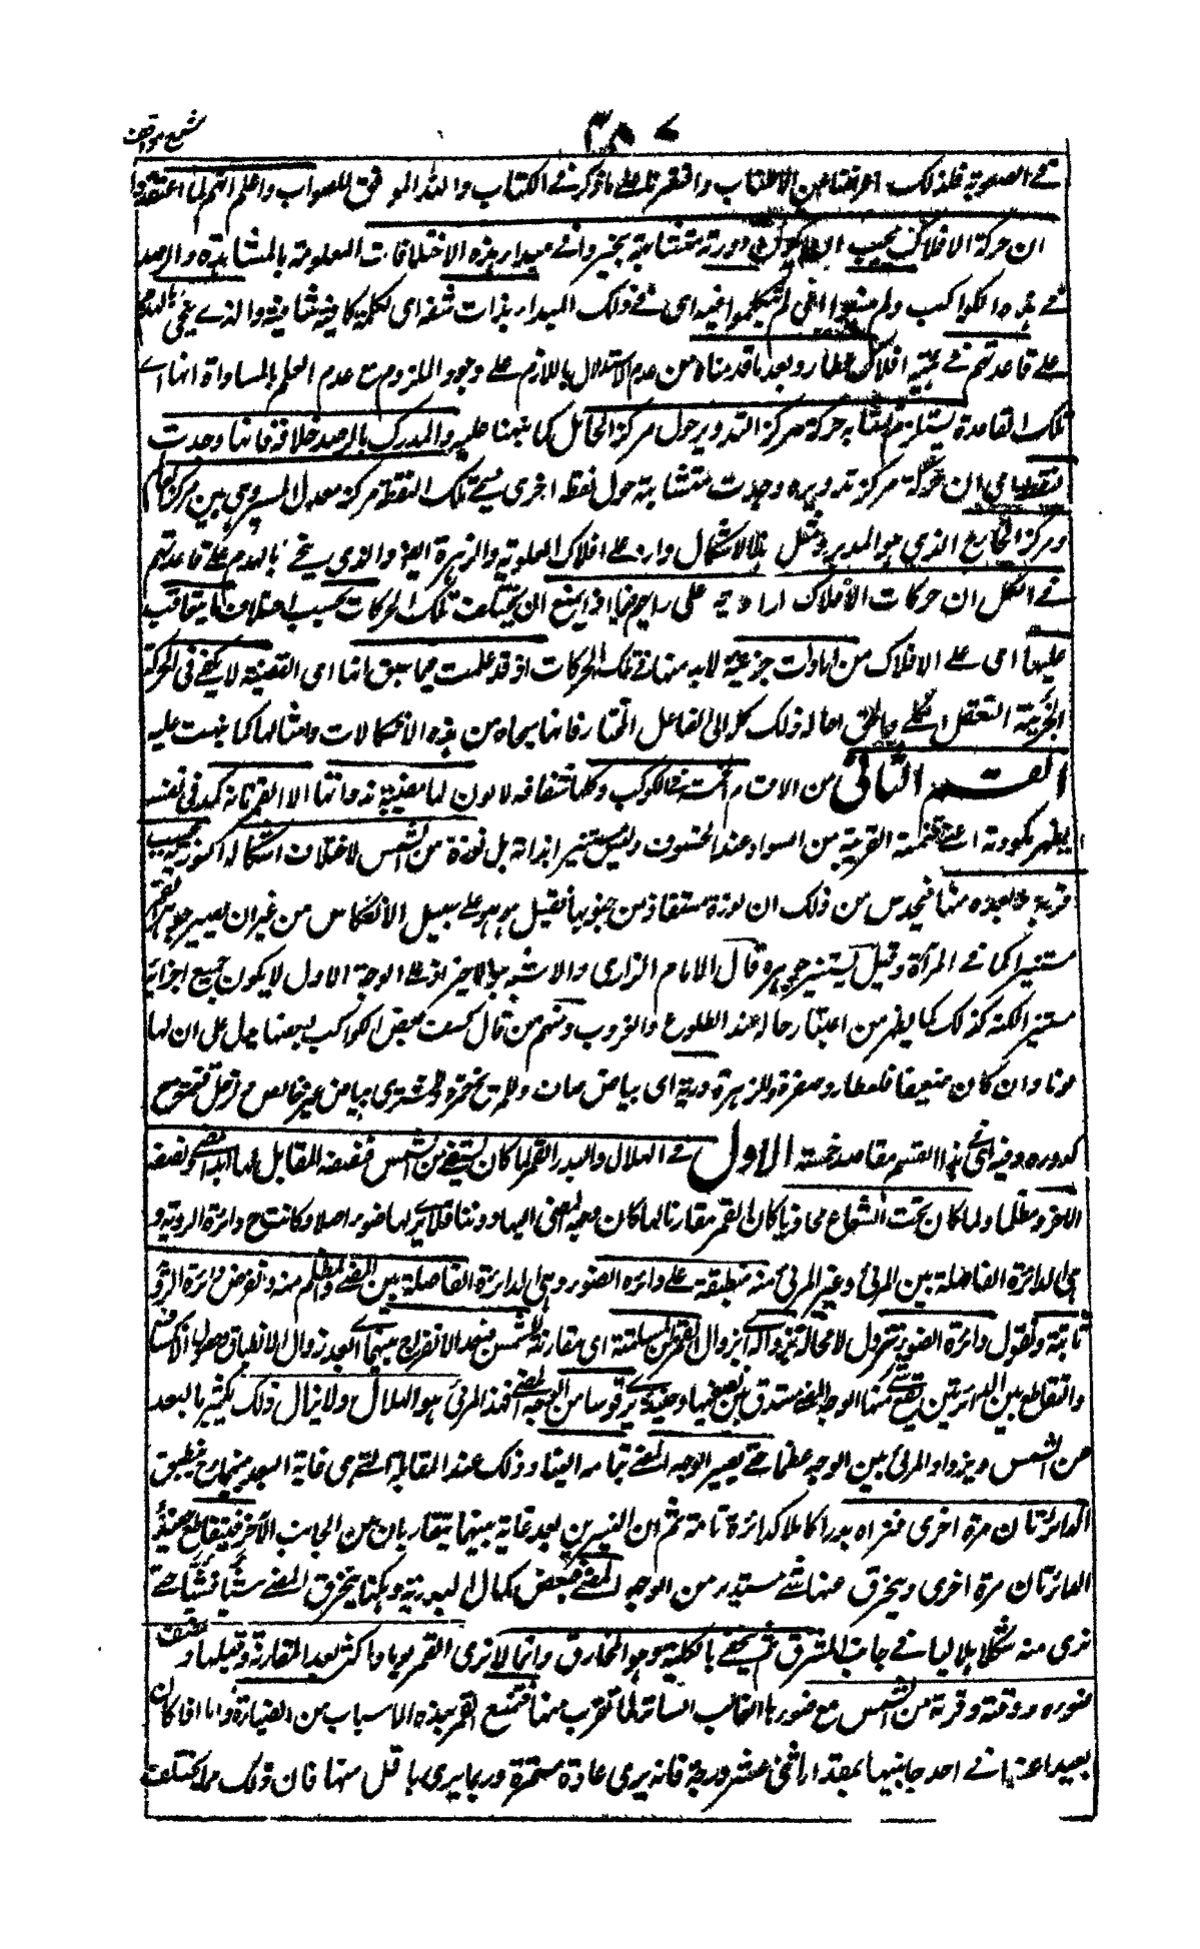 شرح مواقف
في الصعوبة فلذلك اعرضنا عن الاطناب واقتصرنا على ما ذكر في الكتاب والله الموفق للصواب واعلم انهم لما اعتقدوا
ان حركة الافلاك يجب ان يكون دورية متشابهة تحيروا في مبدأ هذه الاختلافات المعلومة بالمشاهدة والرصد
في هذه الكواكب ولم يتكلموا فيه اي في ذلك المبدأ ببنت شفة اي كلمة كافية شافية والذي ينحي بالهدم
على قاعدتهم في هيئة افلاك عطارد بعد ما قدمناه من عدم الاستدلال باللازم على وجود الملزوم مع عدم العلم بالمساواة انها اي
تلك القاعدة يستلزم تشابه حركة مركز التدوير حول مركز الحامل كما نبهنا عليه والمدرك بالرصد خلافه فانها وجدت
اي ان حركة مركز تدويره وجدت متشابهة حول نقطة اخرى يسمى تلك النقطة مركز معدل المسير وهي بين مركز العالم
ومركز الخارج الذي هو المدير ومثل هذا الاشكال وارد على افلاك العلوية والزهرة ايضا والذي ينحي بالهدم على قاعدتهم
في الكل ان حركات الافلاك ارادية على رايهم فما ذا يمنع ان يختلف تلك الحركات بحسب اختلاف ما يتعاقب
عليها اي على الافلاك من ارادات جزئية لا بد منها في تلك الحركات اذ قد علمت مما سبق انها اي القضية لا يكفي في الحركة
الجزئية التعقل الكلي والحق احالة ذلك كله الى الفاعل المختار فانها نجاة من هذه الاشكالات وامثالها كما نبهت عليه
القسم الثاني من الاقسام الخمسة في الكواكب وكلها شفافة لا لون لها مضيئة بذواتها الا القمر فانه كمد في نفسه
يظهر كمودته اعني ظلمته القريبة من السواد عند الخسوف وليس يستنير بذاته بل نوره من الشمس لاختلاف اشكاله النورية بحسب
قربه وبعده منها فيحدس من ذلك ان نوره مستفاد من ضوئها فقيل هو على سبيل الانعكاس من غير ان يصير جوهر القمر
مستنيرا كما في المرآة وقيل يستنير جوهره قال الامام الرازي والاشبه هو الاخير اذ على الوجه الاول لا يكون جميع اجزائه
مستنيرا لكنه كذلك كما يظهر من اعتبار حاله عند الطلوع والغروب ومنهم من قال كسف بعض الكواكب بعضها يدل على ان لها
لونا وان كان ضعيفا فلعطارد صفرة وللزهرة درية اي بياض صاف وللمريخ حمرة وللمشتري بياض غير خالص ولزحل قتمة مع
كدورة وفيه اي في هذا القسم مقاصد خمسة الاول في الهلال والبدر القمر لما كان يستضيء من الشمس فنصفه المقابل لها ابدا مضيء ونصفه
الآخر مظلما ولما كان تحت الشعاع محاذيا كان القمر مقارنا لها كان وجهه المضيء اليها دوننا فلا يرى لها ضوء اصلا وكانت ح دائرة الرؤية و
هي الدائرة الفاصلة بين المرئي وغير المرئي منه منطبقة على دائرة الضوء وهي الدائرة الفاصلة بين المضيء والمظلم منه ونفرض دائرة الرؤية
ثابتة ونقول دائرة الضوء تزول لا محالة بزواله اي بزوال القمر عن المسامتة اي مقارنة الشمس فبعد الانفراج بينهما اي بعد زوال الانطباق
والتقاطع بين الدائرتين يقع شيء منها الوجه المضيء مستدق بين نصفيهما وحينئذ يرى قوسا من الوجه المضيء فهذا المرئي هو الهلال ولا يزال ذلك يكثر بالبعد
عن الشمس ويزداد المرئي من الوجه عظما حتى يصير الوجه المضيء بتمامه الينا وذلك عند المقابلة التي هي غاية البعد بينهما ح فينطبق
الدائرتان مرة اخرى فنراه بدرا كاملا كدائرة تامة ثم ان النيرين بعد غاية بينهما يتقاربان من الجانب الآخر فيتقاطع حينئذ
الدائرتان مرة اخرى وينحرف عنها شيء مستدير من الوجه المضيء فينقص كمال البدرية وهكذا ينحرف المضيء شيئا فشيئا حتى
نرى منه شكلا هلاليا في جانب المشرق ثم يختفي بالكلية وهو المحاق وانما لا نرى القمر يوما واكثر بعد المقارنة وقبلها لضعف
ضوءه ودقته وقربه من الشمس مع ضوئها الغالب الساتر لما تقرب منها فتمنع القمر بهذه الاسباب من الضياء واما اذا كان
بعيدا عنها في احد جانبيها بمقدار اثنى عشر درجة فانه يرى عادة مستمرة وربما يرى باقل منها فان ذلك مما يختلف